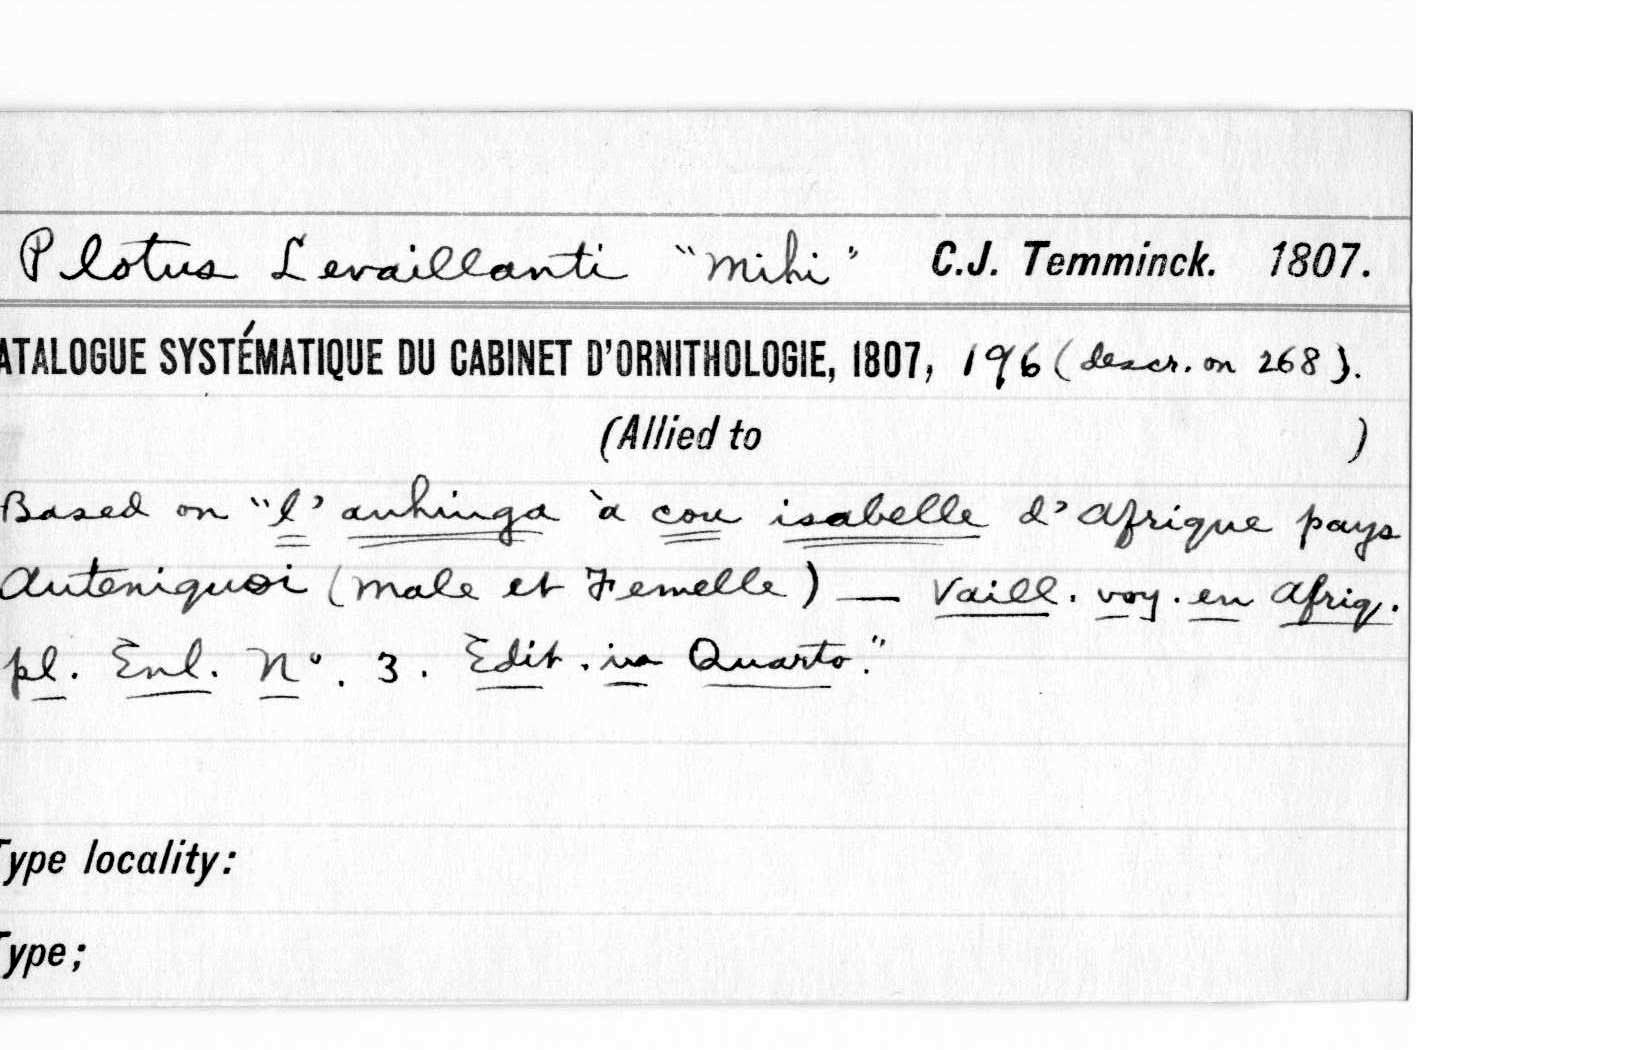 Plotus Levaillanti "Mihi" C.J. Temminck. 1807.
ATALOGUE SYSTÉMATIQUE DU CABINET D'ORNITHOLOGIE, 1807, 196 (descr. on 268).
(Allied to )
Based on "l' anhinga à cou isabelle d'Afrique pays
Auteniquoi (Male et Femelle) — Vaill. voy. en Afriq.
pl. Enl. No. 3. Edit. in Quarto."
Type locality:
Type;